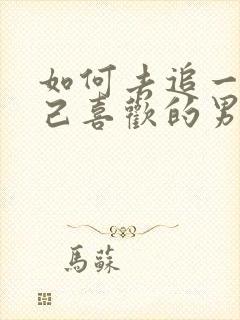 如何去追一
己喜歡的男
馬蘇